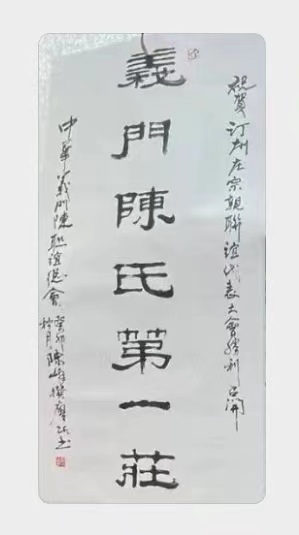 祝賀汀州庄宗親聯誼代表大會勝利召開
義門陳氏第一莊
中華義門陳聯誼總會
癸卯
月陳